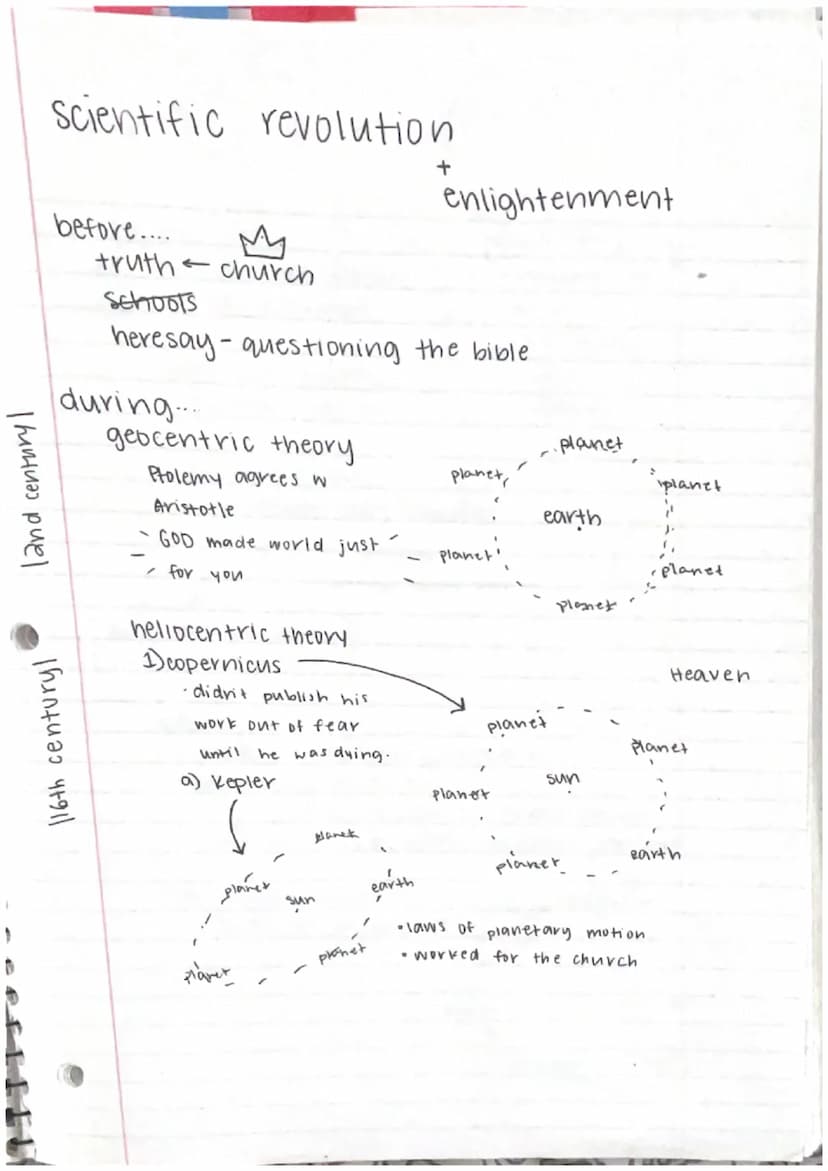 scientific revolution
+
enlightenment
before....
truth ← church
schools
heresay - questioning the bible
during...
geocentric theory
Ptolemy agrees w
Aristotle
GOD made world just
for you
|2nd century|
planet
planet
planet
earth
planet
planet
planet
heliocentric theory
1) copernicus
· didn't publish his
work out of fear
until he was dying.
|16th century|
Heaven
planet
planet
sun
planet
earth
planet
2) Kepler
planet
planet
earth
sun
planet
planet
• laws of planetary motion
• worked for the church